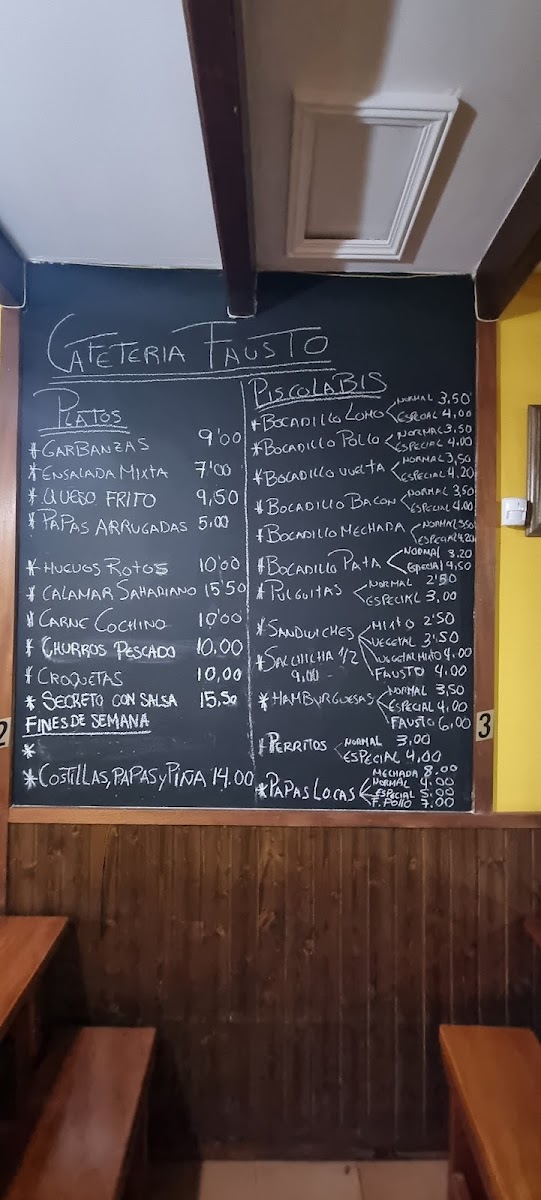 CAFETERIA FAUSTO
PLATOS
* GARBANZAS 9'00
* ENSALADA MIXTA 7'00
* QUESO FRITO 9,50
* PAPAS ARRUGADAS 5,00
* HUEVOS ROTOS 10'00
* CALAMAR SAHARIANO 15'50
* CARNE COCHINO 10'00
* CHURROS PESCADO 10,00
* CROQUETAS 10,00
* SECRETO CON SALSA 15,50
FINES DE SEMANA
*
* COSTILLAS, PAPAS y PIÑA 14.00
PISCOLABIS
* BOCADILLO LOMO < NORMAL 3,50
ESPECIAL 4,00
* BOCADILLO POLLO < NORMAL 3.50
ESPECIAL 4.00
* BOCADILLO VUELTA < NORMAL 3,50
ESPECIAL 4.20
* BOCADILLO BACON < NORMAL 3,50
ESPECIAL 4.00
* BOCADILLO MECHADA < NORMAL 3.50
ESPECIAL 4.20
* BOCADILLO PATA < NORMAL 3.20
* PULGUITAS < NORMAL 2'50
ESPECIAL 3,00
* SANDWICHES < MIXTO 2'50
VEGETAL 3'50
VEGETAL MIXTO 4.00
FAUSTO 4.00
* SALCHICHA 1/2
9,00
* HAMBURGUESAS < NORMAL 3,50
ESPECIAL 4,00
FAUSTO 6,00
* PERRITOS < NORMAL 3,00
ESPECIAL 4,00
* PAPAS LOCAS < MECHADA 8.00
NORMAL 4.00
ESPECIAL 5.00
F. POLLO 7.00
2
3